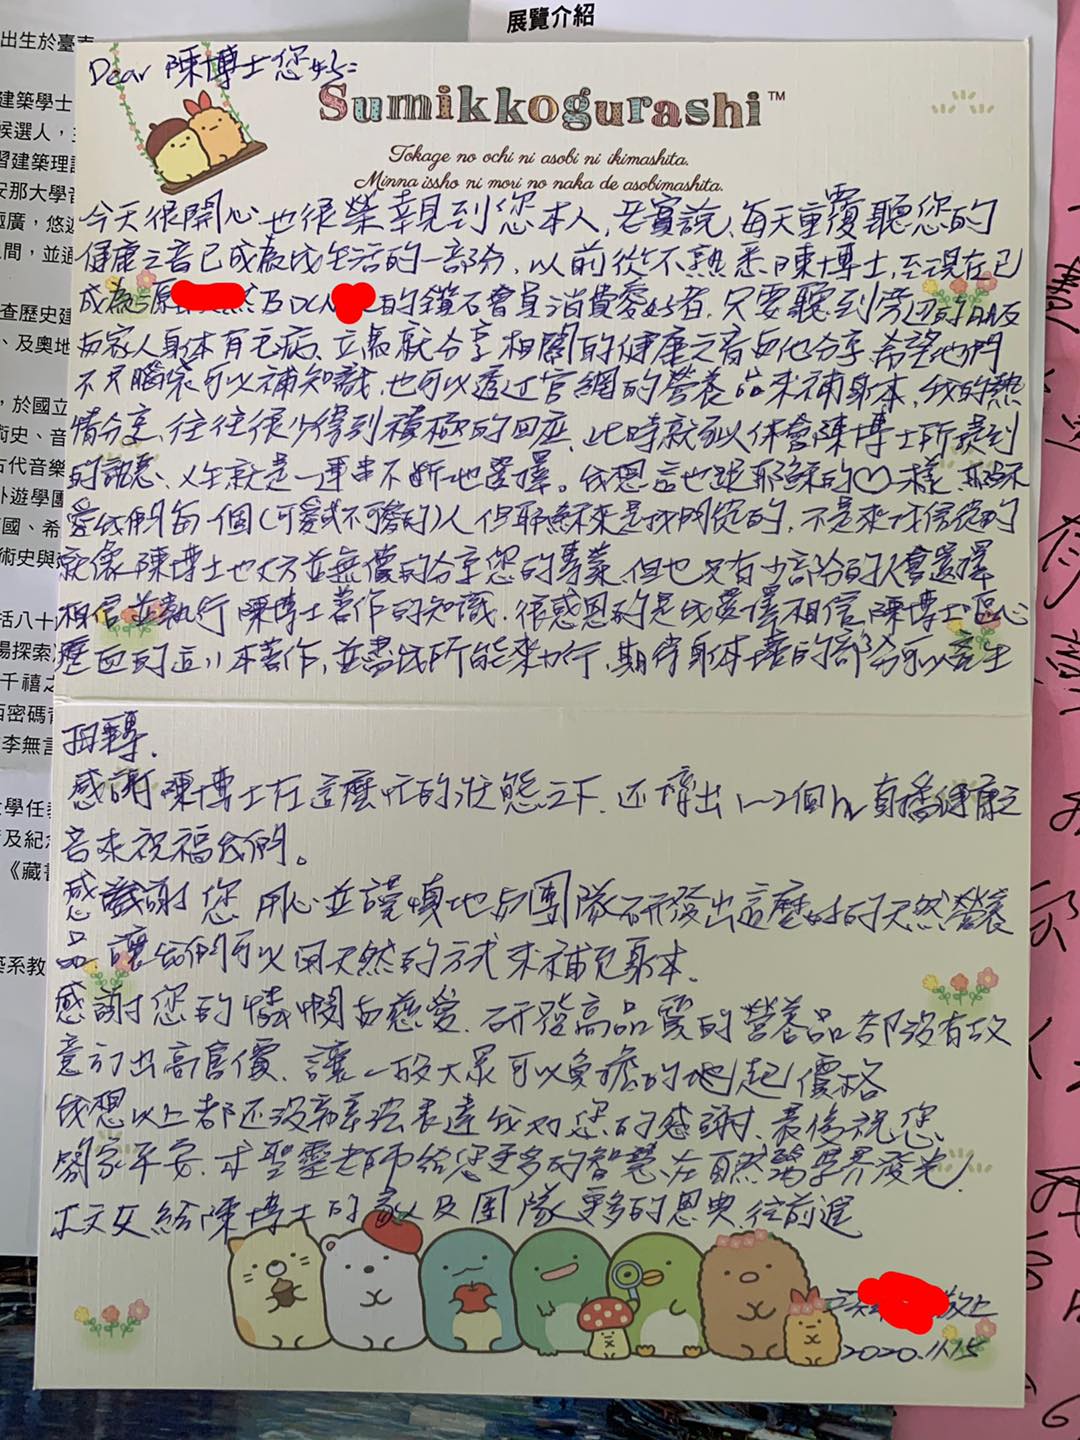 展覽介紹
出生於臺南
建築學士
候選人，主
習建築理
安那大學音
極廣，悠遊
間，並通
查歷史建
、及奧地
，於國立
術史、音
古代音樂
外遊學團
國、希
術史與
括八十
場探索
千禧之
西密碼
李無言
大學任教
及紀念
《藏書
築系教
Dear 陳博士您好:
Sumikkogurashi™
Tokage no ochi ni asobi ni ikimashita.
Minna issho ni mori no naka de asobimashita.
今天很開心也很榮幸見到您本人，老實說，每天重覆聽您的
健康之音已成為我生活的一部份，以前從不熟悉陳博士，至現在已
成為 原 然及DCN 的鑽石會員消費愛好者，只要聽到旁邊的朋友
與家人身体有毛病、立馬就分享相關的健康之音與他分享，希望他們
不只腦袋可以補知識，也可以透过官網的營養品來補身体，我的熱
情分享，往往很少得到積極的回應，此時就可以体會陳博士所提到
的訊息、人生就是一連串不断地選擇。我想這也跟耶穌的♡一樣，耶穌
愛我們每一個(可愛或不可愛的)人 但耶穌來是找門徒的，不是來找信徒的
就像陳博士也大方並無償的分享您的專業，但也只有少部份的人會選擇
相信並執行陳博士著作的知識，很感恩的是我選擇相信陳博士嘔心
瀝血的這11本著作，並盡我所能來力行，期待身体壞的部份可以產生
扭轉.
感謝陳博士在這麼忙的狀態之下，还擠出1~2個hr直播健康之
音來祝福我們。
感謝您 用心並謹慎地与團隊研發出這麼好的天然營養
品 讓我們可以用天然的方式來補充身体.
感謝您的憐憫與慈愛，研發高品質的營養品却沒有故
意訂出高售價，讓一般大眾可以負擔的地起價格
我想以上都还沒辦法表達我对您的感謝，最後祝您
闔家平安，求聖靈老師給您更多的智慧，在自然醫學界發光!
求天父給陳博士的家人及團隊更多的恩典往前進
敬上
2020.11.15